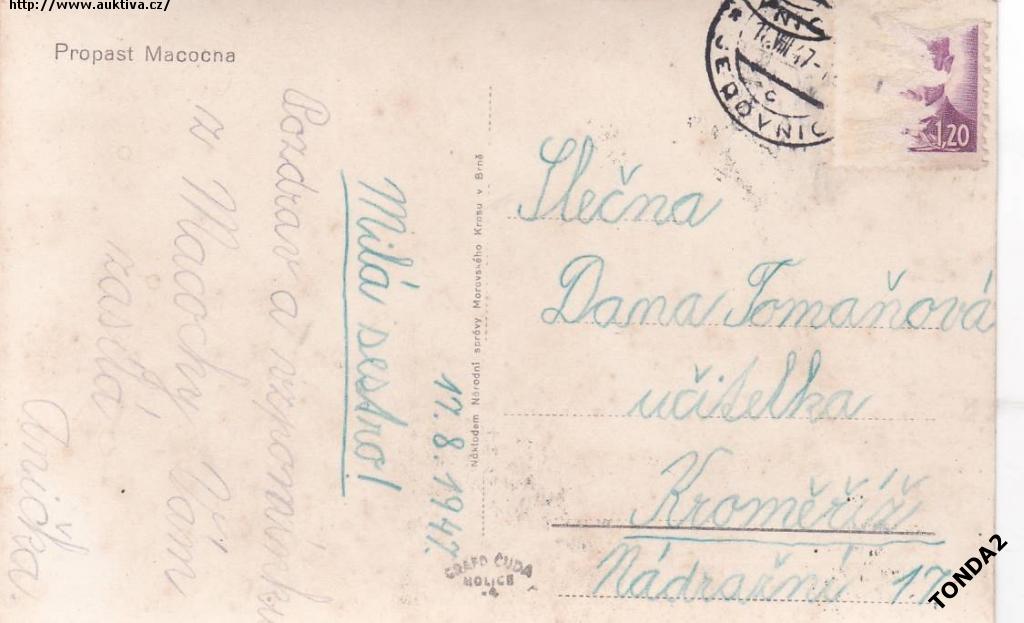 http://www.auktiva.cz/
Propast Macocha
JEDOVNIC
1,20
17.8.1947.
Milá sestro!
Pozdrav a vzpomínku
z Macochy Vám
zasílá
Anička.
Nákladem Národní správy Moravského Krasu v Brně
Slečna
Dana Tomaňová
učitelka
Kroměříž
Nádražní 17
GRAFO ČUDA
HOLICE
TONDA2